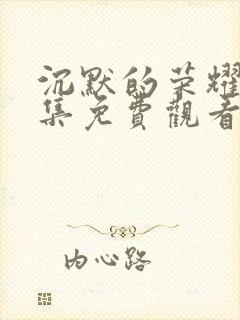 沉默的荣耀
集免費觀看
内心路